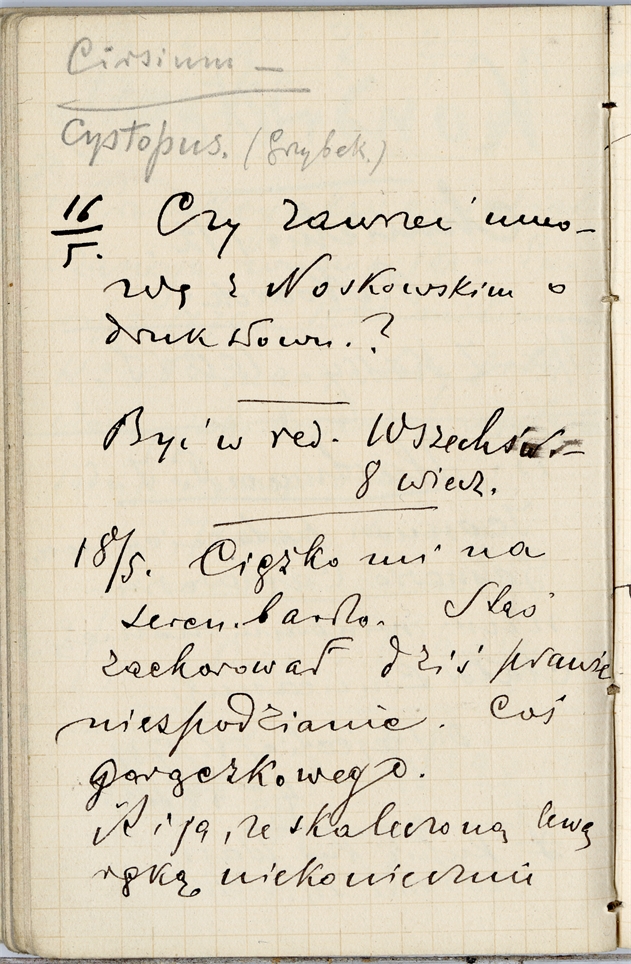 Cirsium –
Cystopus. (Grzybek.)
16/5. Czy zawrzeć umo-
wę z Noskowskim o
druk słown.?
Być w red. Wszechśw.
8 wiecz.
18/5. Ciężko mi na
sercu. bardzo. Staś
zachorował dziś prawie
niespodzianie. Coś
gorączkowego.
A i ja, ze skaleczoną lewą
ręką niekoniecznie